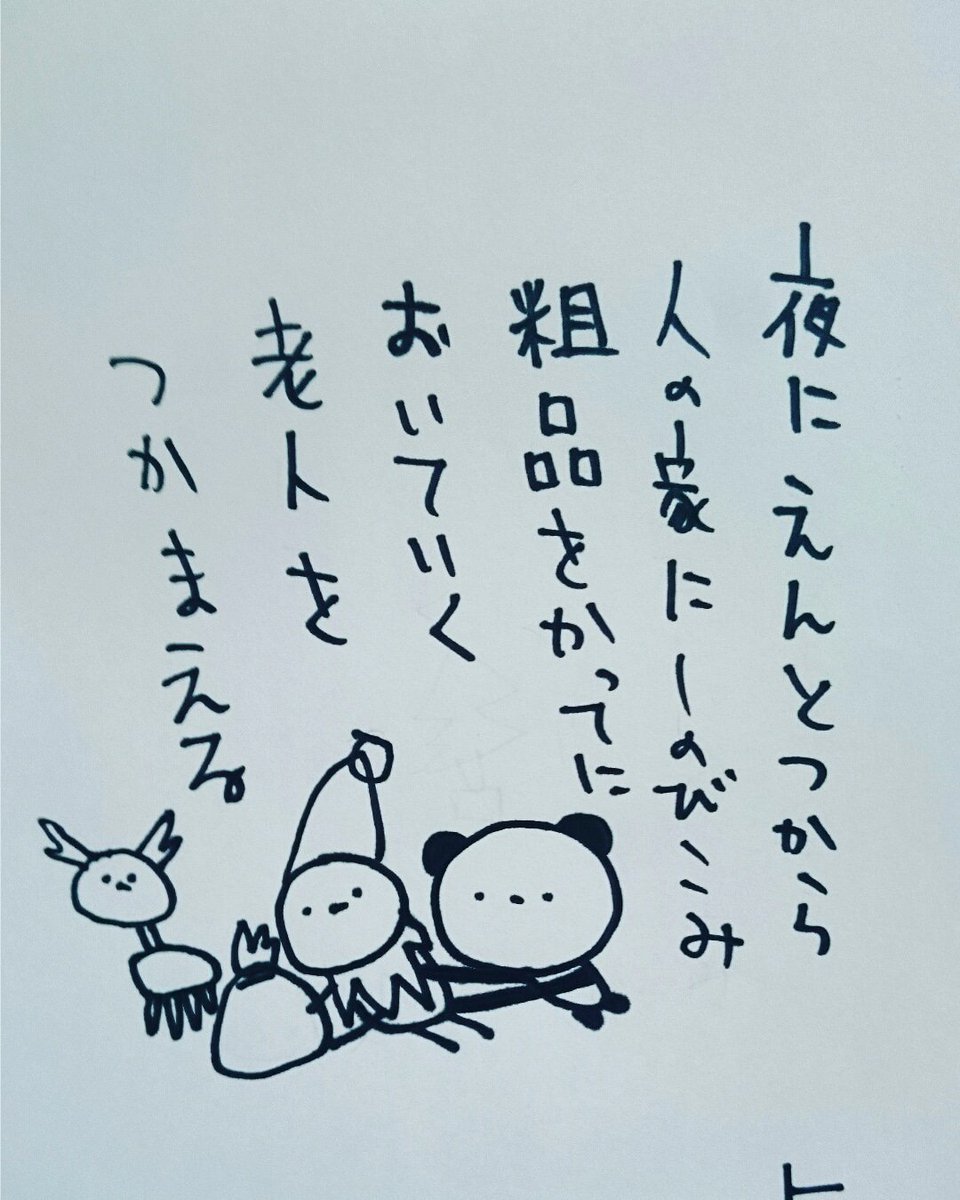 夜にえんとつから
人の家にしのびこみ
粗品をかってに
おいていく
老人を
つかまえる